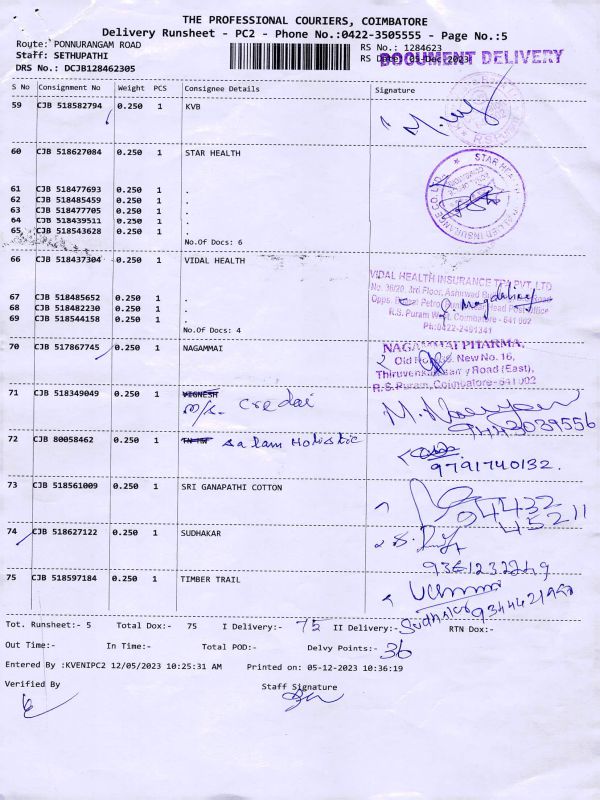 THE PROFESSIONAL COURIERS, COIMBATORE
Delivery Runsheet - PC2 - Phone No.:0422-3505555 - Page No.:5
Route: PONNURANGAM ROAD
RS No.: 1284623
Staff: SETHUPATHI
RS Date: 05-Dec-2023
DOCUMENT DELIVERY
DRS No.: DCJB128462305
S No Consignment No Weight PCS Consignee Details Signature
59 CJB 518582794 0.250 1 KVB
60 CJB 518627084 0.250 1 STAR HEALTH
61 CJB 518477693 0.250 1 .
62 CJB 518485459 0.250 1 .
63 CJB 518477705 0.250 1 .
64 CJB 518439511 0.250 1 .
65 CJB 518543628 0.250 1 .
No.Of Docs: 6
66 CJB 518437304 0.250 1 VIDAL HEALTH
VIDAL HEALTH INSURANCE TPA PVT LTD
No. 36/20, 3rd Floor,
R.S. Puram West, Coimbatore - 641 002
Ph:0422-2491341
67 CJB 518485652 0.250 1 .
68 CJB 518482230 0.250 1 .
69 CJB 518544158 0.250 1 .
No.Of Docs: 4
70 CJB 517867745 0.250 1 NAGAMMAI
NAGAMMAI PHARMA,
Old No. New No. 16,
Road (East),
R.S.Puram, Coimbatore-641 002
71 CJB 518349049 0.250 1 VIGNESH
M/s. Credai
72 CJB 80058462 0.250 1 Salam Holistic
9791740132.
73 CJB 518561009 0.250 1 SRI GANAPATHI COTTON
04432
45211
74 CJB 518627122 0.250 1 SUDHAKAR
75 CJB 518597184 0.250 1 TIMBER TRAIL
Tot. Runsheet:- 5 Total Dox:- 75 I Delivery:- 75 II Delivery:- RTN Dox:-
Out Time:- In Time:- Total POD:- Delvy Points:- 36
Entered By :KVENIPC2 12/05/2023 10:25:31 AM Printed on: 05-12-2023 10:36:19
Verified By Staff Signature